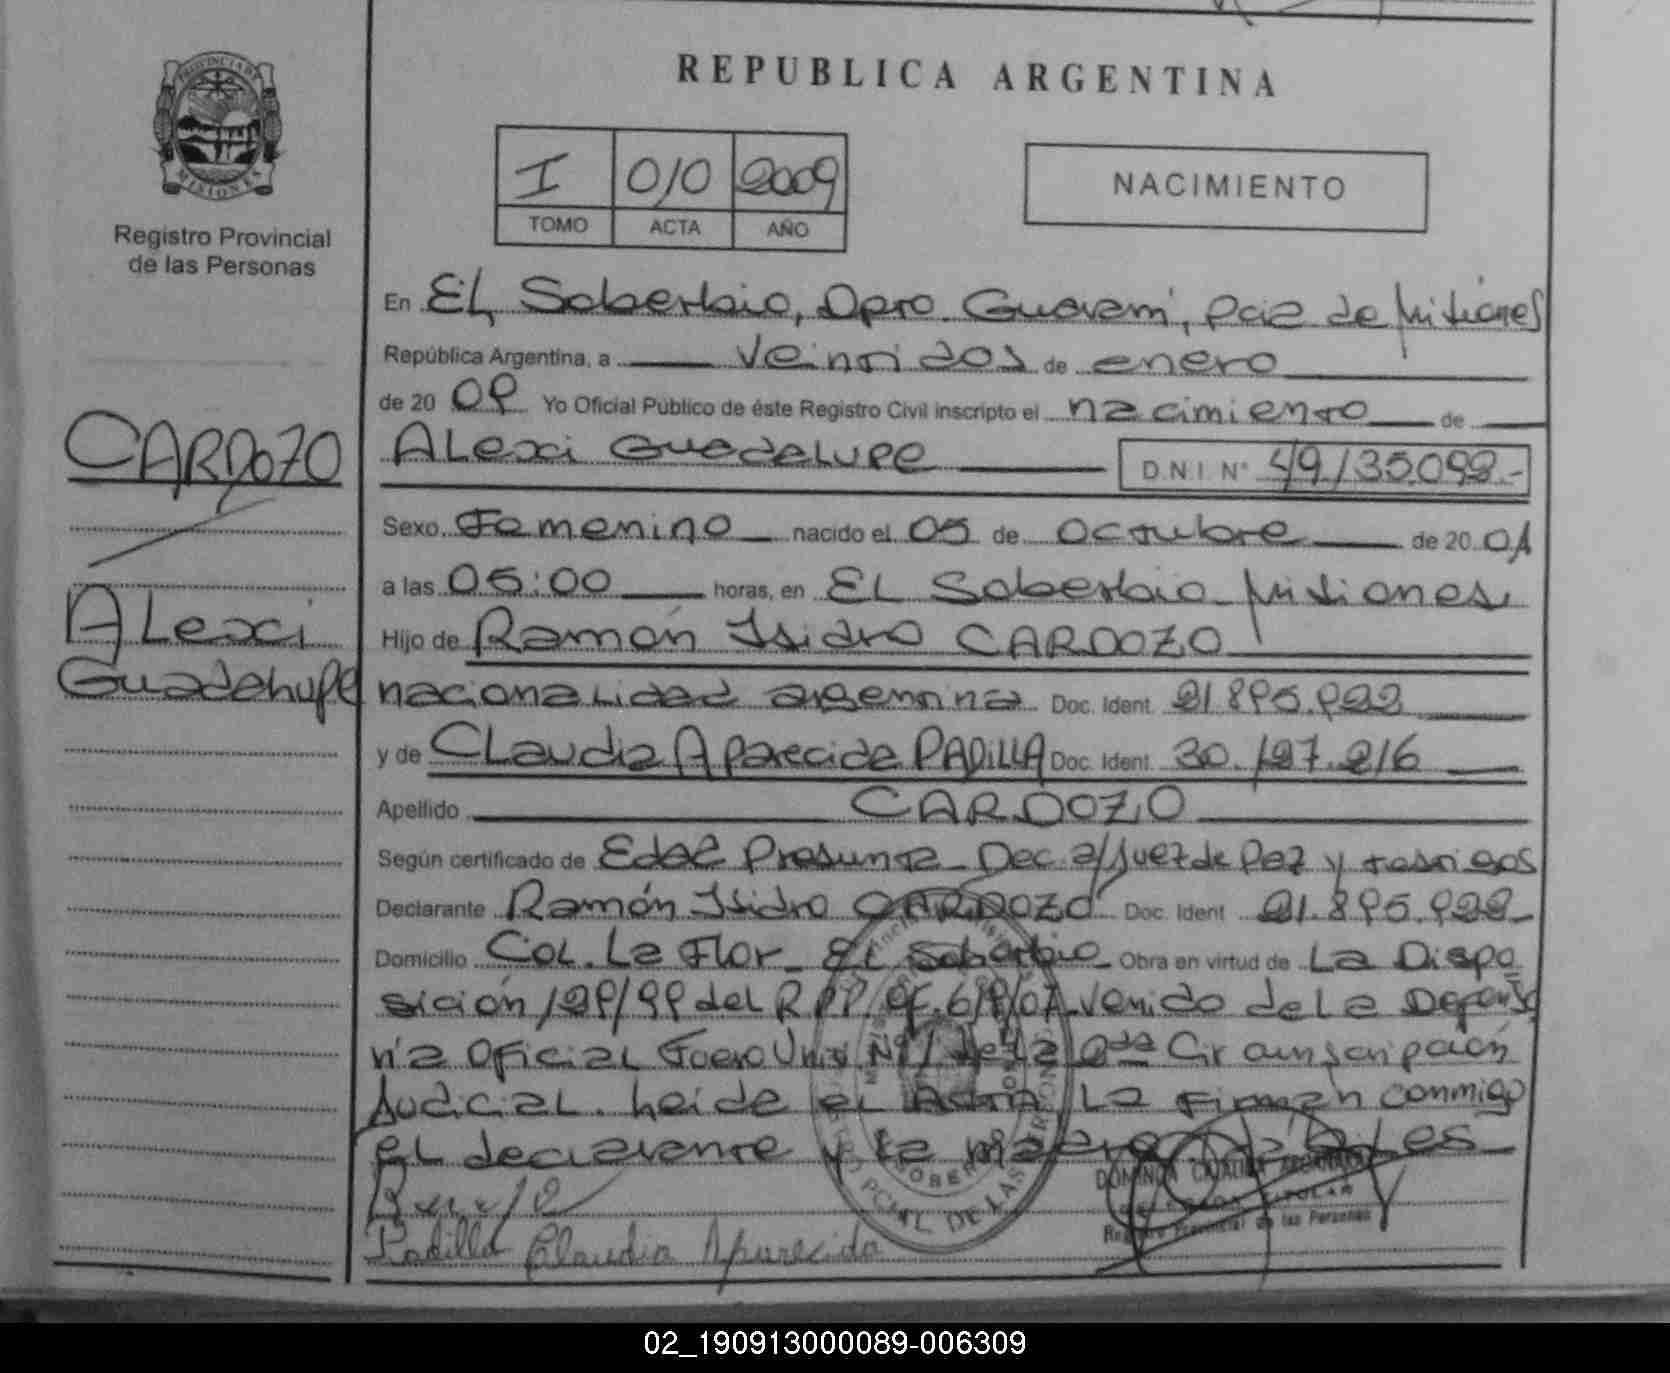 PROVINCIA DE
MISIONES
Registro Provincial
de las Personas
CARDOZO
Alexi
Guadelupe
REPUBLICA ARGENTINA
I 010 2009
TOMO ACTA AÑO
NACIMIENTO
En El Soberbio, Dpto. Guaraní, Pcia de Misiones
República Argentina, a veintidos de enero
de 20 09 Yo Oficial Público de éste Registro Civil inscripto el nacimiento de
Alexi Guadelupe D.N.I. Nº 49135092.-
Sexo Femenino nacido el 05 de Octubre de 20 01
a las 05:00 horas, en El Soberbio Misiones
Hijo de Ramón Isidro CARDOZO
nacionalidad argentina Doc. Ident. 21.895.922
y de Claudia Aparecida PADILLA Doc. Ident. 30.127.216
Apellido CARDOZO
Según certificado de Edad Presunta Dec. a/Juez de Paz y testigos
Declarante Ramón Isidro CARDOZO Doc. Ident 21.895.922
Domicilio Col. La Flor El Soberbio Obra en virtud de La Dispo
sición 129/99 del R.P.P. Of. 619/07 venido de la Defenso
ría Oficial Fuero Univ. Nº 1 de la 2da Circunscripción
Judicial. Leída el Acta, La Firman conmigo
el declarante y la madre
Registro Provincial de las Personas
Padilla Claudia Aparecida
02_190913000089-006309